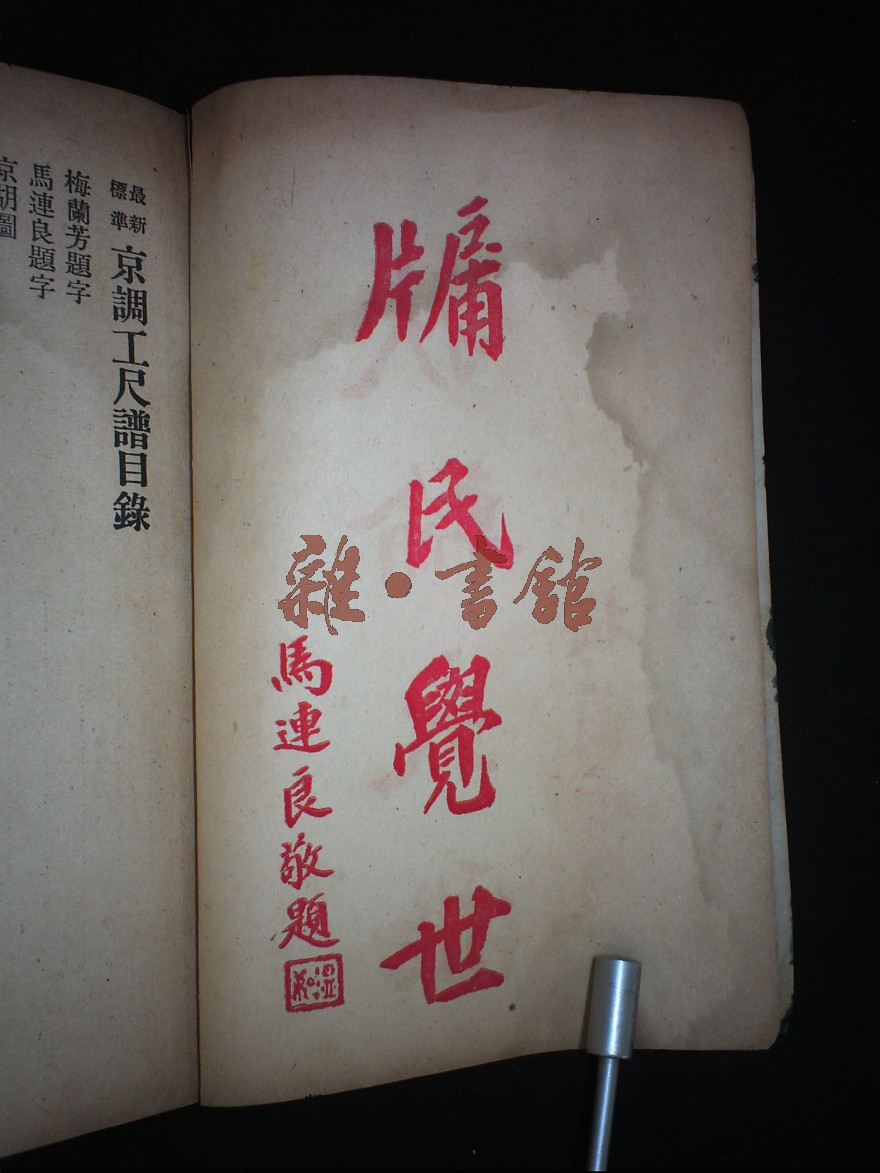 牖民覺世
馬連良敬題
雜·書館
最新標準
京調工尺譜目錄
梅蘭芳題字
馬連良題字
京胡圖